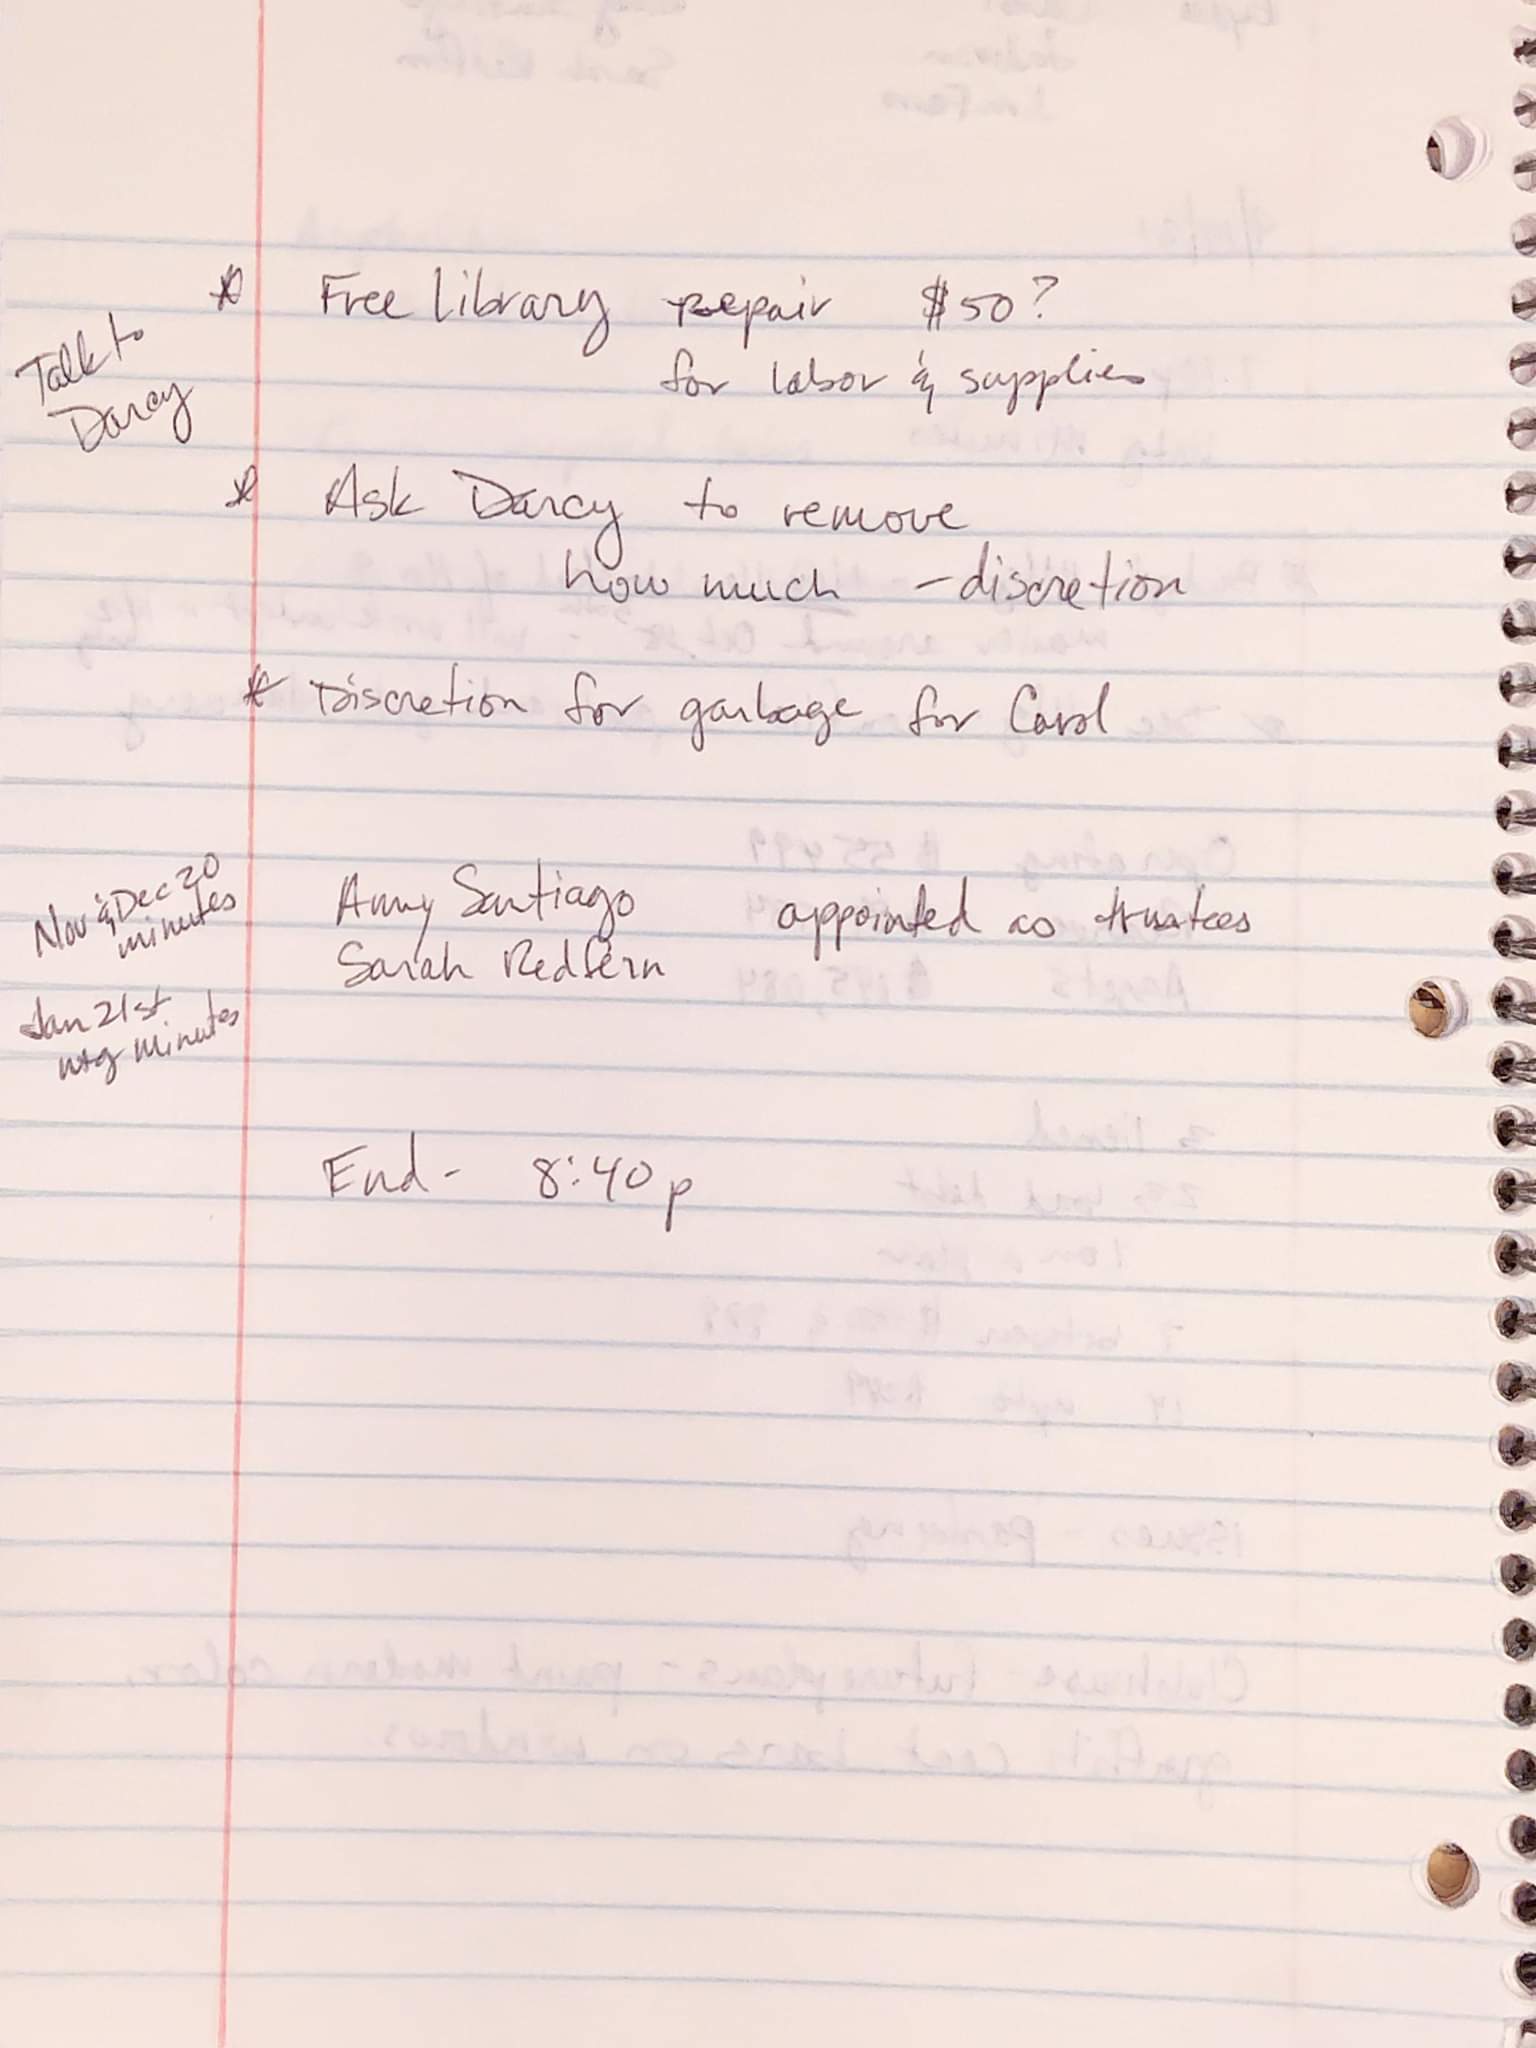 * Free library repair $50?
for labor & supplies
Talk to
Darcy
* Ask Darcy to remove
how much - discretion
* Discretion for garbage for Carol
Nov & Dec 20
minutes
Amy Santiago appointed as trustees
Sarah Redfern
Jan 21st
mtg minutes
End - 8:40p